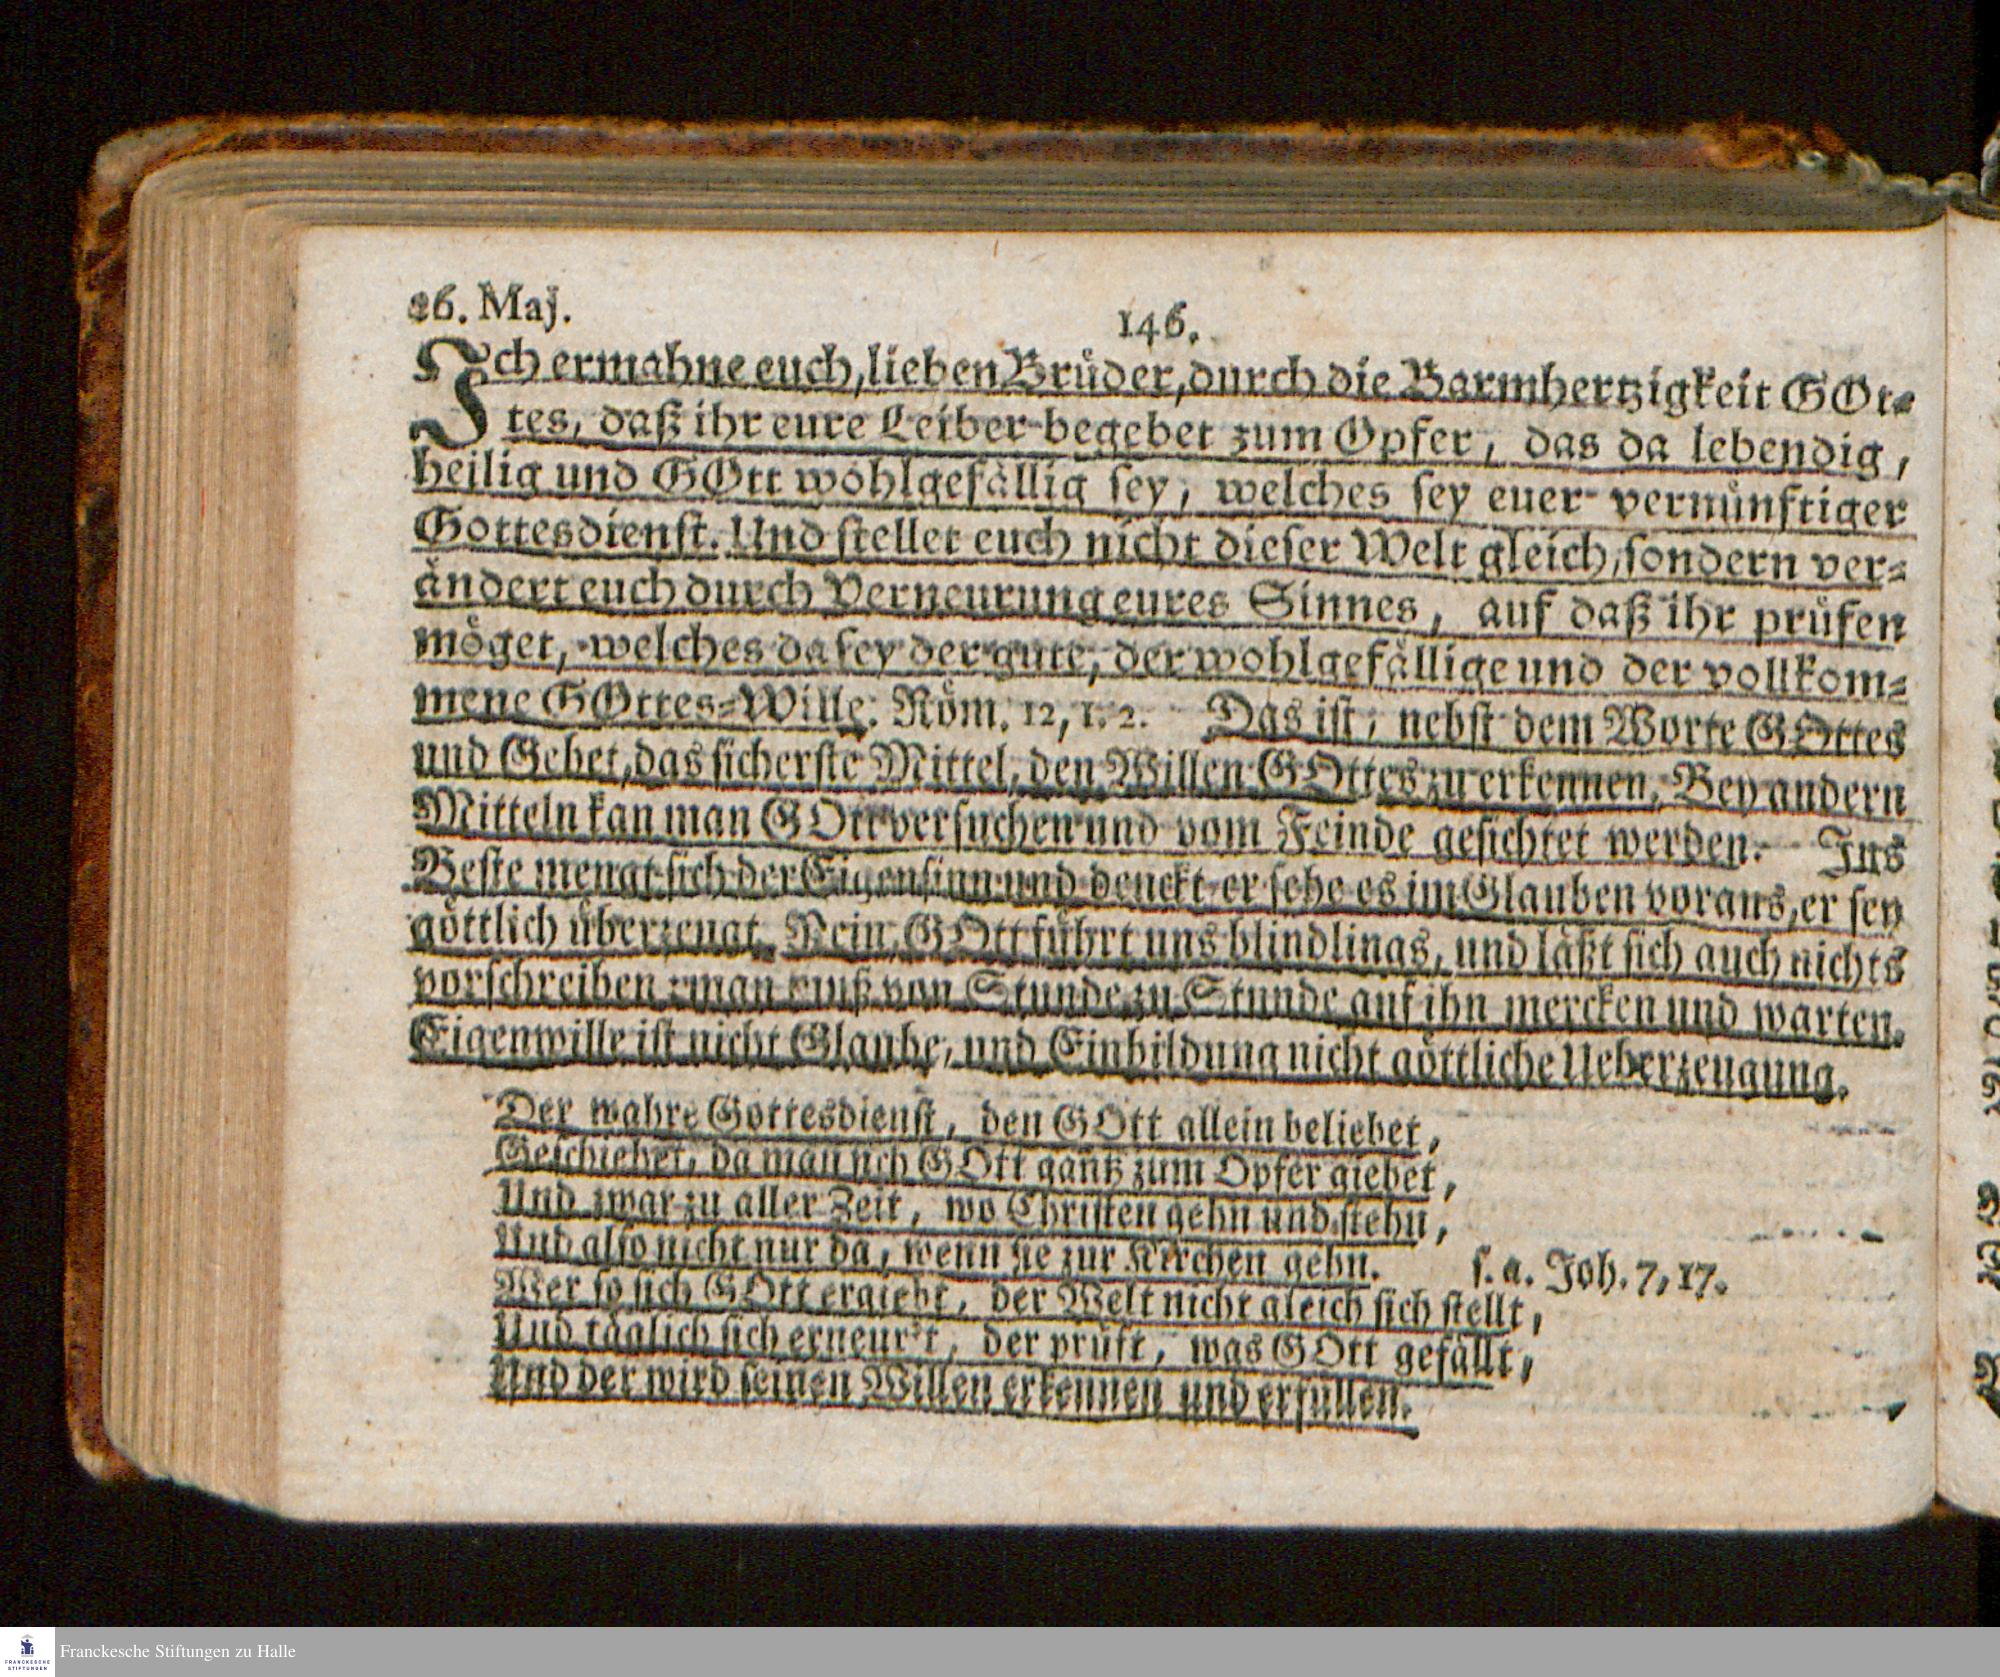 26. Maj.
146.
Ich ermahne euch, lieben Brüder, durch die Barmhertzigkeit GOt-
tes, daß ihr eure Leiber begebet zum Opfer, das da lebendig,
heilig und GOtt wohlgefällig sey, welches sey euer vernünftiger
Gottesdienst. Und stellet euch nicht dieser Welt gleich, sondern ver-
ändert euch durch Verneurung eures Sinnes, auf daß ihr prüfen
möget, welches da sey der gute, der wohlgefällige und der vollkom-
mene GOttes-Wille. Röm. 12, 1. 2. Das ist, nebst dem Worte GOttes
und Gebet, das sicherste Mittel, den Willen GOttes zu erkennen. Bey andern
Mitteln kan man GOtt versuchen und vom Feinde gesichtet werden. Ins
Beste mengt sich der Eigensinn und denckt er sehe es im Glauben voraus, er sey
göttlich überzeugt. Nein, GOtt führt uns blindlings, und läßt sich auch nichts
vorschreiben: man muß von Stunde zu Stunde auf ihn mercken und warten.
Eigenwille ist nicht Glaube, und Einbildung nicht göttliche Ueberzeugung.
Der wahre Gottesdienst, den GOtt allein beliebet,
Geschiehet, da man sich GOtt gantz zum Opfer giebet,
Und zwar zu aller Zeit, wo Christen gehn und stehn,
Und also nicht nur da, wenn sie zur Kirchen gehn. s. a. Joh. 7, 17.
Wer so sich GOtt ergiebt, der Welt nicht gleich sich stellt,
Und täglich sich erneur't, der prüft, was GOtt gefällt,
Und der wird seinen Willen erkennen und erfüllen.
Franckesche Stiftungen zu Halle
FRANCKESCHE
STIFTUNGEN